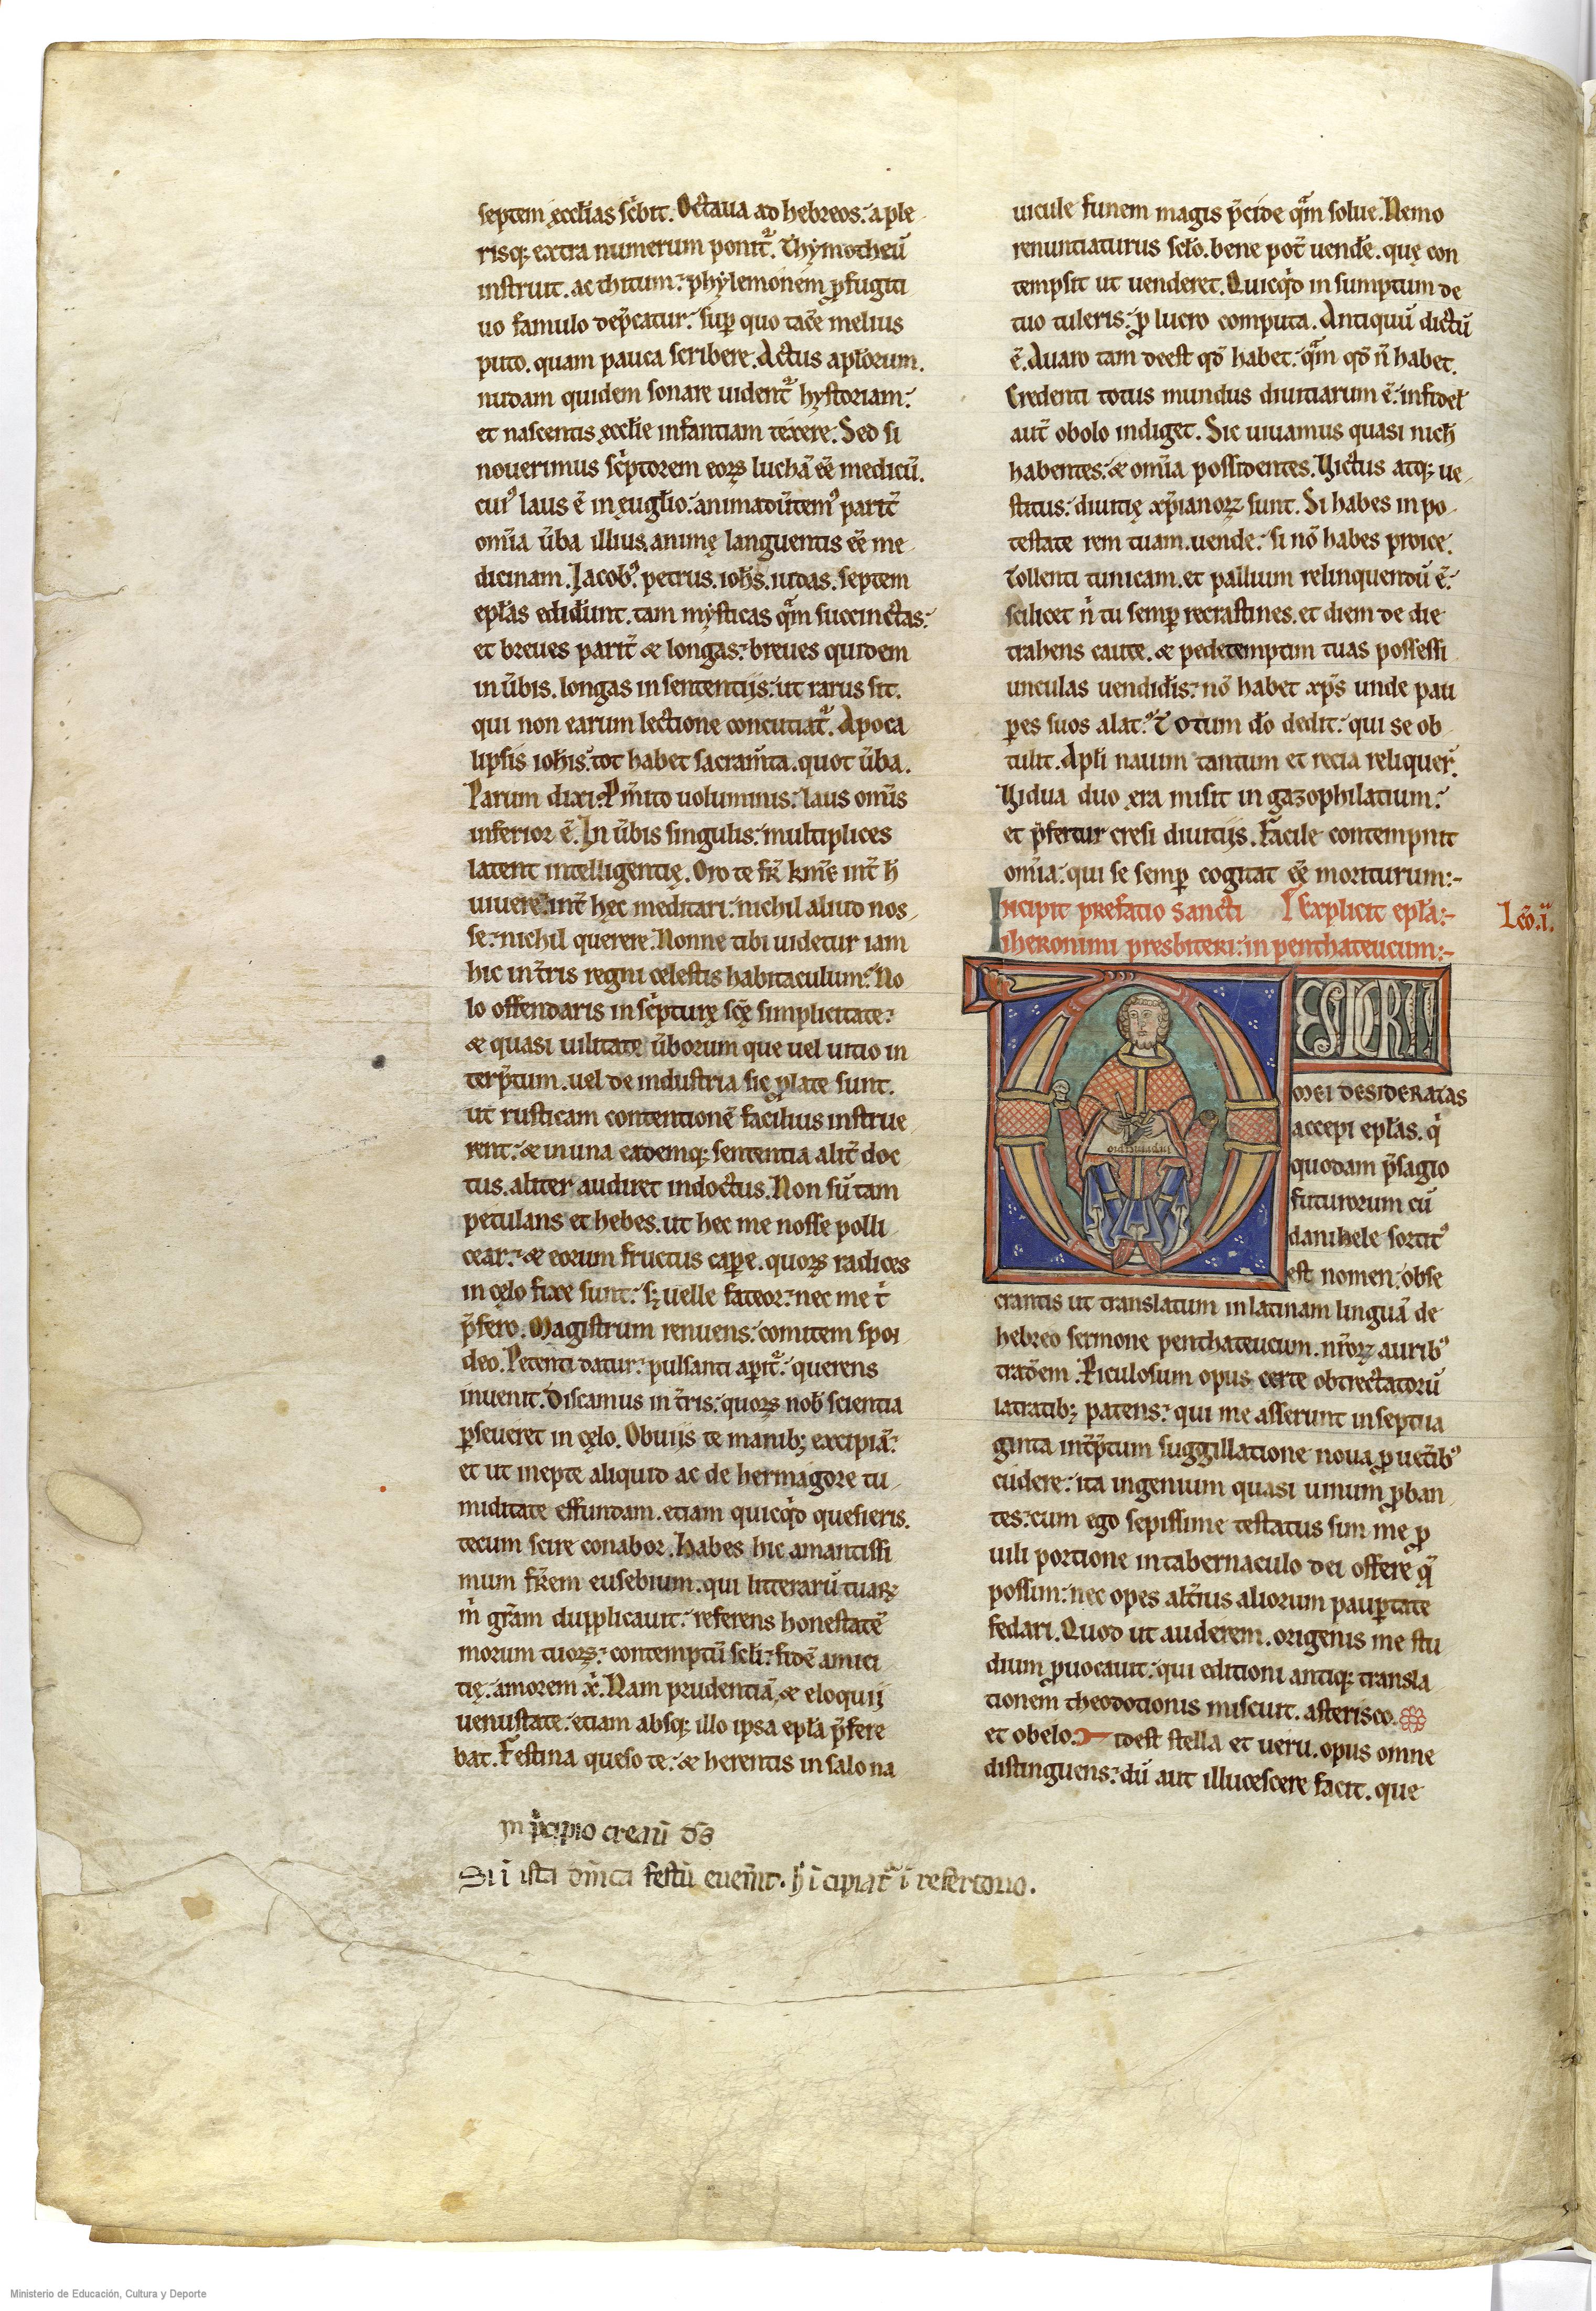 septem ęccłias scͥbit. Octaua ad hebreos: a ple
risq; extra numerum ponit᷑. Thymotheū
instruit. ac thitum: phylemonem ꝓfugiti
uo famulo dep̄catur: suꝑ quo tac̄e melius
puto. quam pauca scribere. Actus apłorum.
nudam quidem sonare uident᷑ hystoriam:
et nascentis ęccłie infantiam texere. Sed si
nouerimus scͥptorem eoꝝ luchā ēē medicū.
cuiꝰ laus ē in euglio: animadūtemꝰ parit̄
om̄ia ūba illius. animę languentis ēē me
dicinam. Jacobꝰ. petrus. ioħs. iudas. septem
epłas ediderunt. tam mysticas qͣm succinctas:
et breues parit̄ & longas: breues quidem
in ūbis. longas in sententijs: ut rarus sit.
qui non earum lectione concutiat᷑. Apoca
lipsis ioħis: tot habet sacram̄ta. quot ūba.
Parum dixi: P m̄ito uoluminis: laus om̄s
inferior ē. In ūbis singulis: multiplices
latent intelligentię. Oro te fr̄ km̄e int̄ ħ
uiuere: int̄ hęc meditari: nichil aliud nos
se: nichil querere. Nonne tibi uidetur iam
hic in t̄ris regni celestis habitaculum? No
lo offendaris in scͥpturę scę̄ simplicitate:
& quasi uilitate ūborum que uel uitio in
terp̄tum. uel de industria sic ꝓlate sunt.
ut rusticam contentionē facilius instrue
rent: & in una eademq; sententia alit̄ doc
tus. aliter audiret indoctus. Non sū tam
petulans et hebes. ut hec me nosse polli
cear: & eorum fructus caꝑe. quoꝝ radices
in cęlo fixe sunt: sꝫ uelle fateor: nec me tͥ
p̄fero. Magistrum renuens: comitem spon
deo. Petenti datur: pulsanti aꝑit᷑: querens
inuenit. Discamus in t̄ris: quoꝝ nob̄ scientia
ꝑseueret in cęlo. Obuiis te manibꝫ excipiā:
et ut inepte aliquid ac de hermagore tu
miditate effundam. etiam quicqͥd quesieris.
tecum scire conabor. Habes hic amantissi
mum fr̄em eusebium. qui litterarū tuaꝝ
mͥ gr̄am dupplicauit: referens honestatē
morum tuoꝝ: contemptū scłi: fidē amici
tię: amorem xͥ. Nam prudentiā, & eloquii
uenustate. etiam absq; illo ipsa epła p̄fere
bat. Festina queso te: & herentis in salo na
In pͥncipio creauͭ ds̄
Si ī ista dn̄ica festū euen̄it. ħ īcipiat᷑ ī refertorio.
uicule funem magis p̄cide qͣm solue. Nemo
renuntiaturus scło. bene pot̄ uende. quę con
tempsit ut uenderet. Quicqͥd in sumptum de
tuo tuleris: ꝓ lucro computa. Antiquū dictū
ē. Auaro tam deest qd̄ habet: qͣm qd̄ n̄ habet.
Credenti totus mundus diuitiarum ē: infidel
aut̄ obolo indiget. Sic uiuamus quasi nich̄
habentes: & om̄ia possidentes. Uictus atq; ue
stitus: diuitię xp̄ianoꝝ sunt. Si habes in po
testate rem tuam. uende: si nō habes proice.
Tollenti tunicam. et pallium relinquendū ē:
scilicet nͥ tu semꝑ recrastines. et diem de die
trahens caute. & pedetemptim tuas possessi
unculas uendid̄is: nō habet xp̄s unde pau
ꝑes suos alat. Totum do dedit: qui se ob
tulit. Apłi nauim tantum et recia reliquer̄.
Uidua duo ęra misit in gazophilatium:
et p̄fertur cresi diuitijs. Facile contempnit
om̄ia: qui se semꝑ cogitat ēē moriturum:-
Incipit prefatio sancti explicit epła:-
iheronimi presbiteri: in penthateucum:-
Lc̄o. i.ͣ
DESIDERII
mei desideratas
accepi epłas. qͥ
quodam p̄sagio
futurorum cū
danihele sortitꝰ
est nomen: obse
crantis ut translatum in latinam linguā de
hebreo sermone penthateucum. nr̄oꝝ auribꝰ
tradēem. Ꝑiculosum opus certe obtrectatorū
latratibꝫ patens: qui me asserunt in septua
ginta int̄p̄tum suggillatione noua ꝓ uet̄ibꝰ
cudere: ita ingenium quasi uinum ꝓban
tes: cum ego sepissime testatus sim me ꝓ
uili portione in tabernaculo dei offere qͤ
possim: nec opes alt̄ius aliorum pauꝑtate
fedari. Quod ut auderem. origenis me stu
dium ꝓuocauit: qui editioni antiq; transla
tionem theodotionis miscuit. asterisco.
et obelo. idest stella et ueru. opus omne
distinguens: dū aut illucescere facit. que